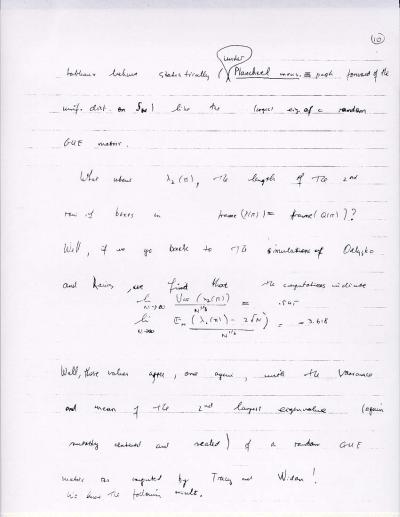 10
under
tableaux behaves statistically ( Plancherel meas. ≡ push forward of the
unif. dist. on S_N ) like the largest eig. of a random
GUE matrix.
What about λ_2(π), the length of the 2nd
row of boxes in frame (P(π)) = frame (Q(π)) ?
Well, if we go back to the simulations of Odlyzko
and Rains, we find that the computations indicate
lim N→∞ Var (λ_2(π)) / N^{1/3} = .545
lim N→∞ E_N (λ_2(π) - 2√N) / N^{1/6} = -3.618
Well, these values agree, once again, with the variance
and mean of the 2nd largest eigenvalue (again
suitably centered and scaled) of a random GUE
matrix as computed by Tracy and Widom!
We have the following result.